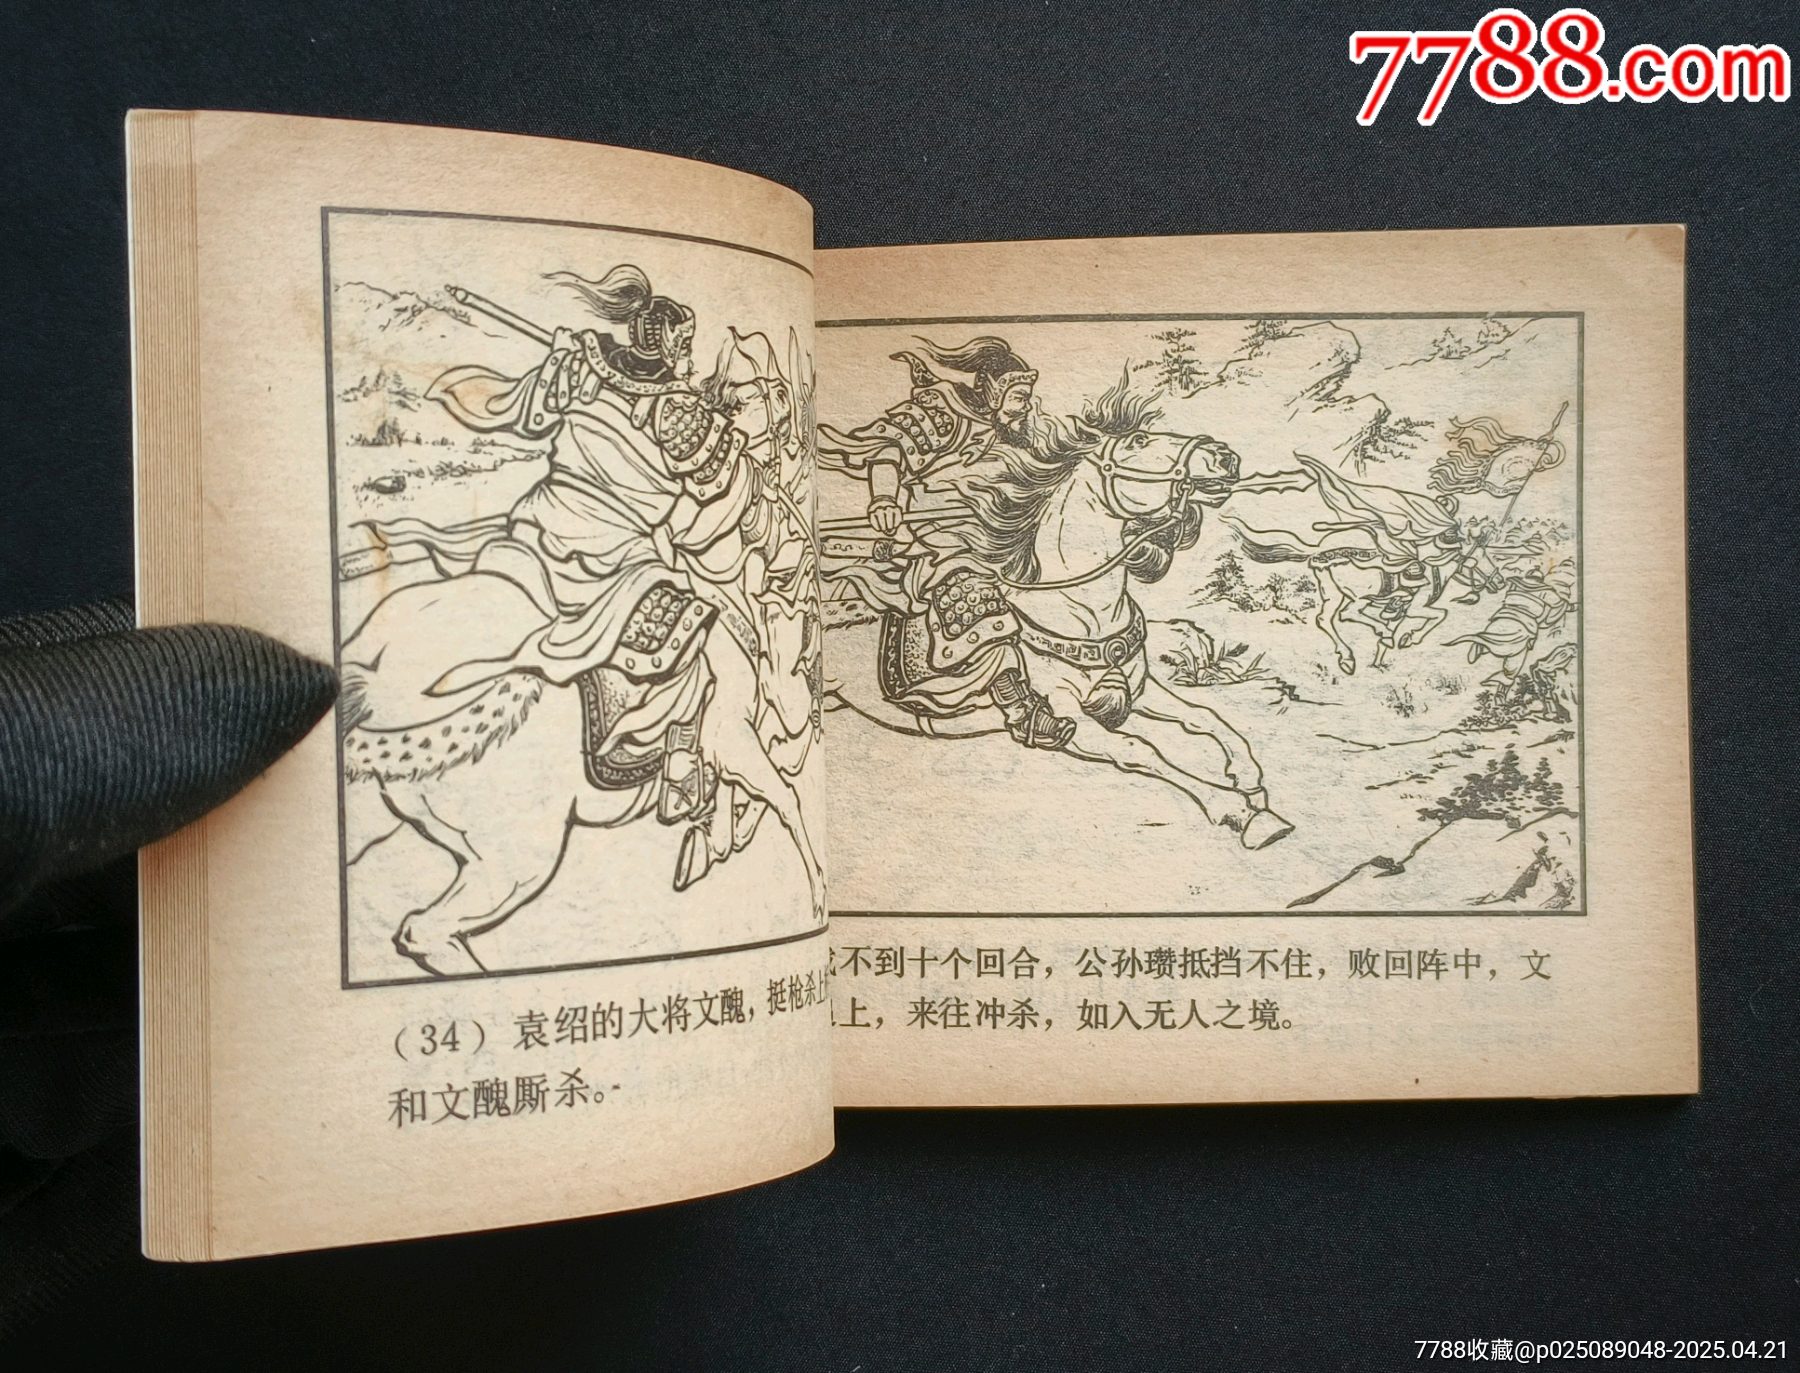 7788.com
（34）袁绍的大将文醜，挺枪杀上
和文醜厮杀。
不到十个回合，公孙瓒抵挡不住，败回阵中，文
上，来往冲杀，如入无人之境。
7788收藏@p025089048-2025.04.21